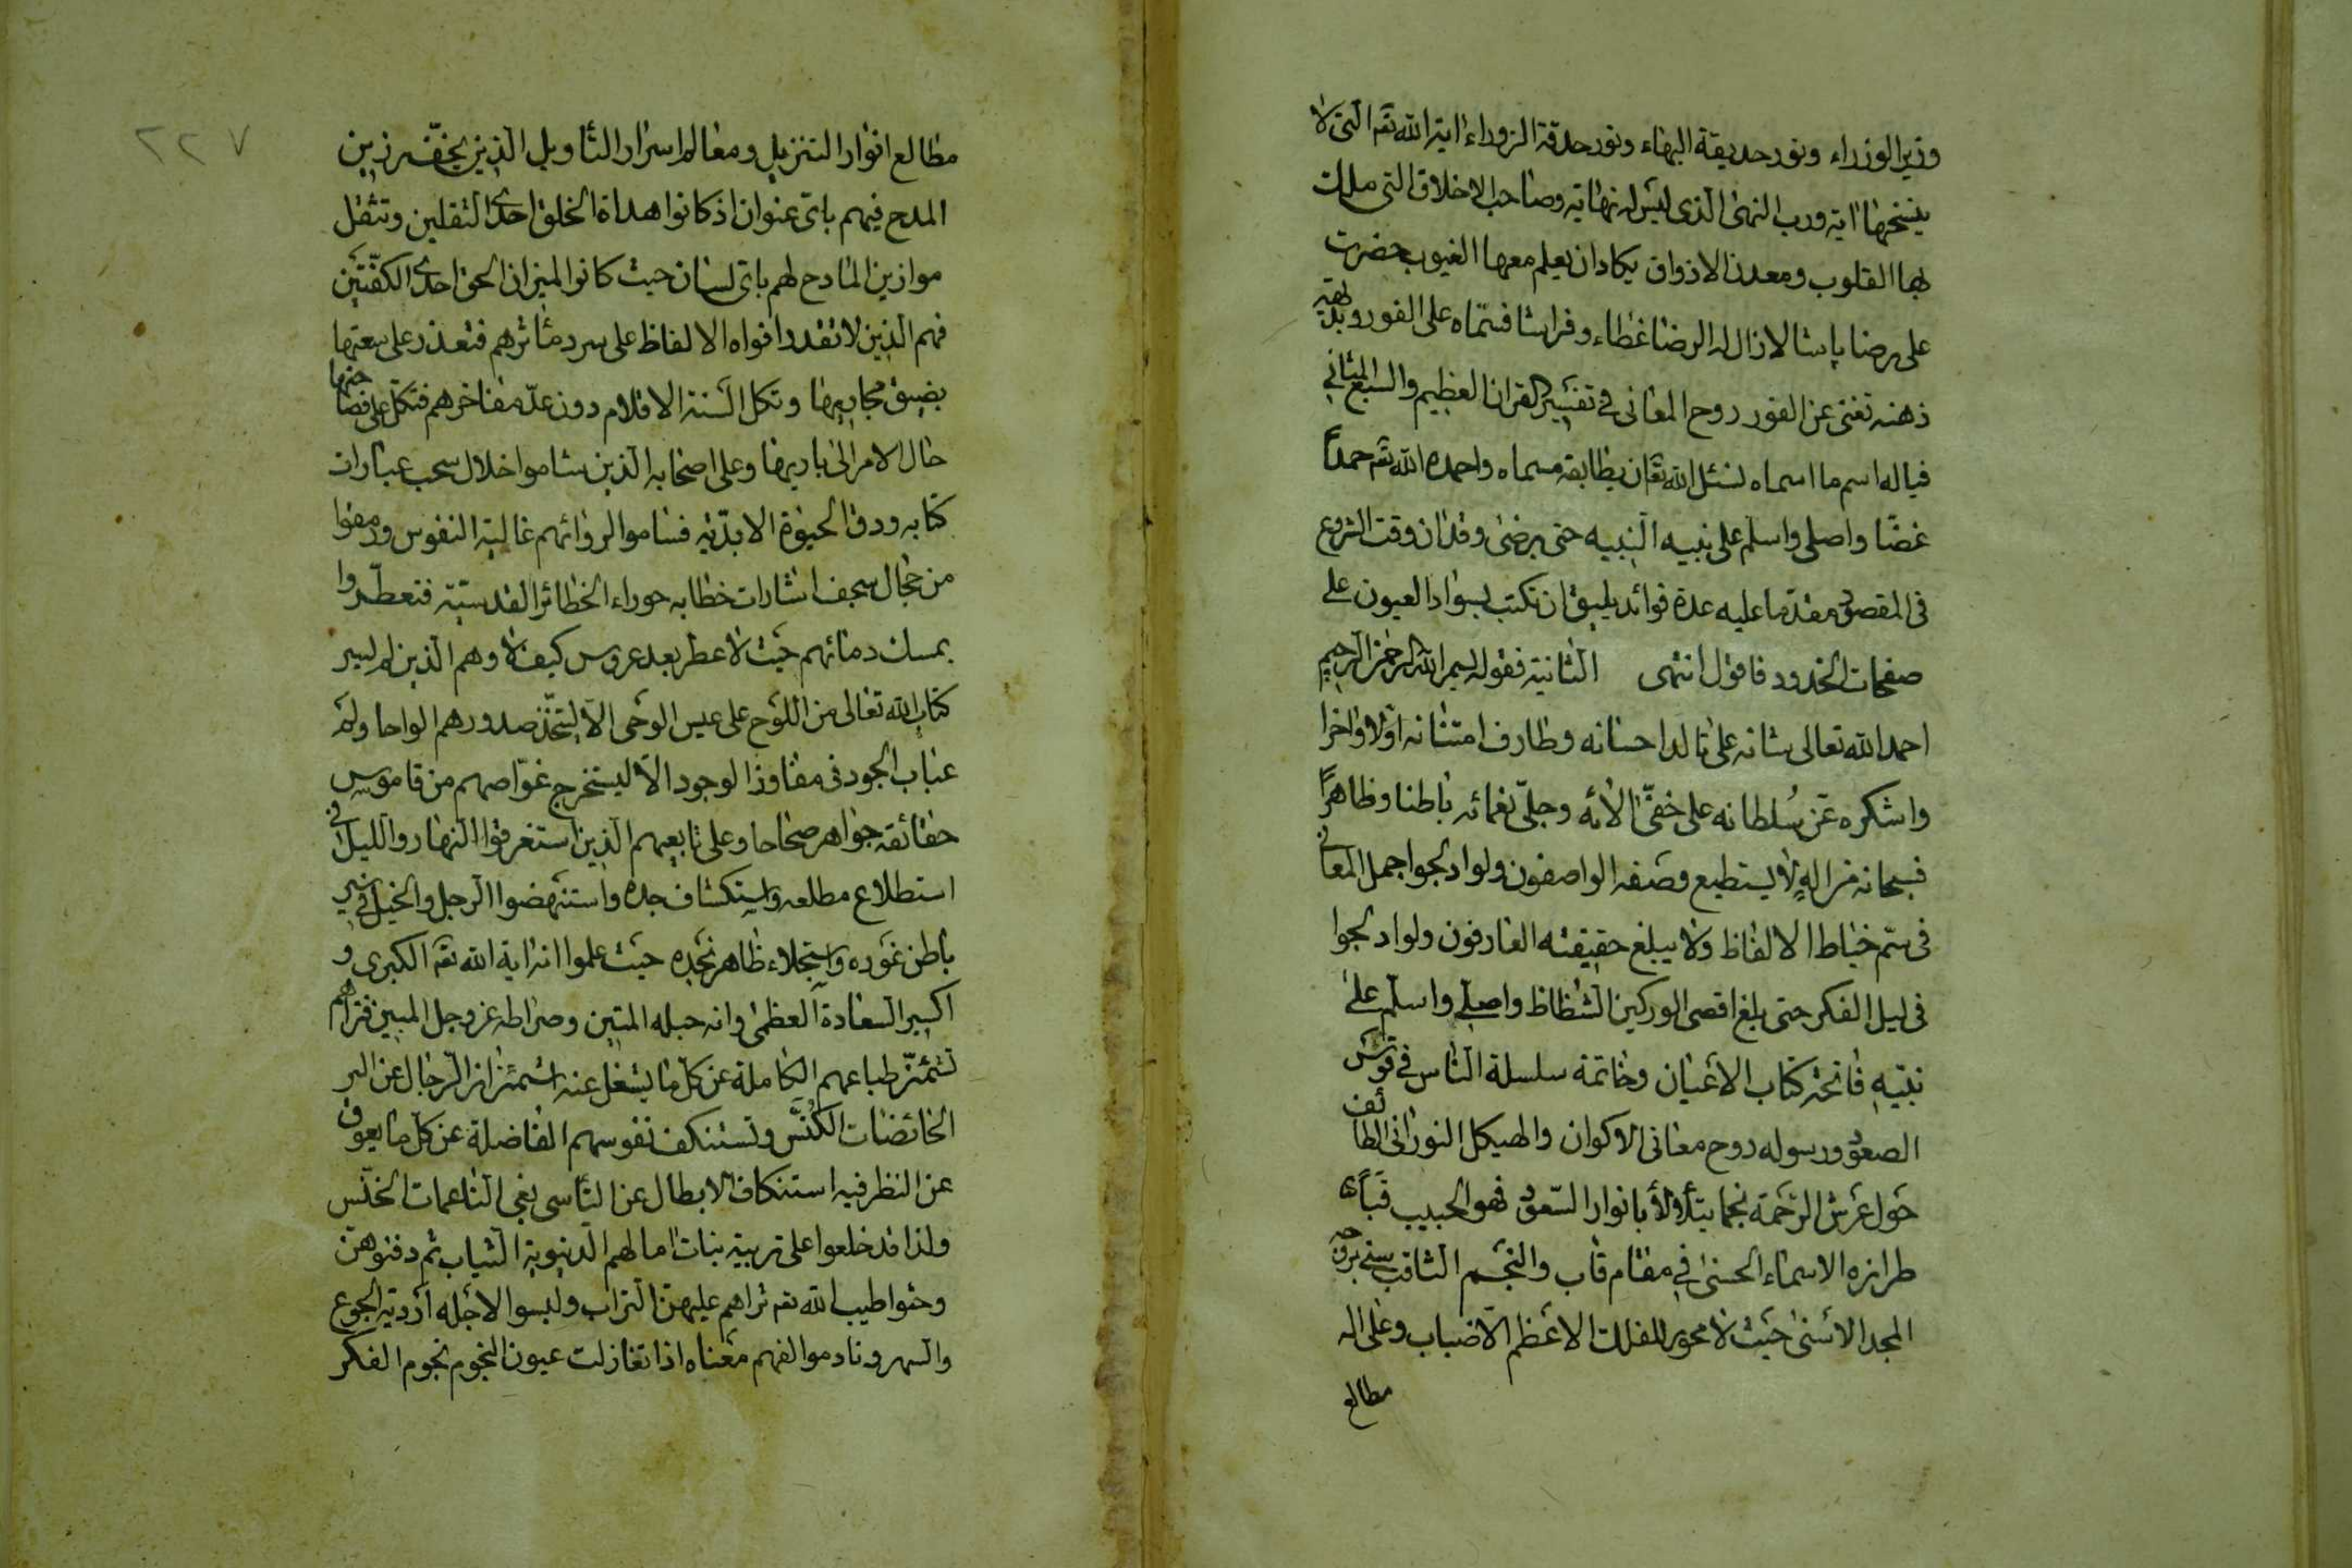 وزير الوزراء ونور حديقة البهاء ونور حدقة الزوراء اية الله تعه التى لا
ينسخها اية ورب النهى الذى ليس له نهاية وصاحب الاخلاق التى ملك
بها القلوب ومعدن الاذواق يكاد ان يعلم معها الغيوب حضرت
على رضا پاشا لا زال له الرضا غطاء وفراشا فسماه على الفور وبديهة
ذهنه تغنى عن الغور روح المعانى فى تفسير القران العظيم والسبع المثانى
فياله اسم ما اسماه نسئل الله تعه ان يطابقه مسماه واحمده الله تعه حمداً
غضّا واصلى واسلم على نبيه النبيه حتى يرضى وقد ان وقت الشروع
فى المقصود مقدّما عليه عدة فوائد يليق ان تكتب بسواد العيون على
صفحات الخدود فاقول انتهى الثانية فقوله بسم الله الرحمن الرحيم
احمد الله تعالى شانه على تالد احسانه وطارف امتنانه اولا واخرا
واشكره عزّ سُلطانه على خفىّ الائه وجلىّ نعمائه باطنا وظاهراً
فسبحانه من الهٍ لا يستطيع وصفه الواصفون ولو ادلجوا جمل المعانى
فى سَم خياط الالفاظ ولا يبلغ حقيقته العارفون ولو ادلجوا
فى ليل الفكر حتى بلغ اقصى الوركين الشظاظ واصلى واسلم على
نبيّه فاتحة كتاب الاعيان وخاتمة سلسلة الناس فى قوس
الصعود ورسوله روح معانى الاكوان والهيكل النورانى الطائف
حَول عَرش الرّحمَة نجما يتلألأ بانوار السّعود فهو الحبيب قباء
طرازه الاسماء الحسنى فى مقام قاب والنجم الثاقب برقعه
المجد الاسنى حيث لا محور الفلك الاعظم الاضباب وعلى اله
مطالع
٢٢٧
مطالع انوار التنزيل ومعالم اسرار التأويل الذين يخفّ رزين
المدح فيهم باىّ عنوان اذ كانوا هداة الخلق احدى الثقلين وتثقل
موازين المادح لهم باىّ لسان حيث كانوا لميزان الحق احدى الكفّتين
فهم الذين لا تقدر افواه الالفاظ على سرد مأثرهم فتعذر على سعتها
بضيق مجاريها وتكل السنة الاقلام دون عدّ مفاخرهم فتكل على فصاحتها
حال الامر الى باريها وعلى اصحابه الذين شاموا خلال سحب عبارات
كتابه ودق الحيوة الابديّه فساموا لروائهم غالية النفوس ورمقوا
من حجال سجف اشارات خطابه حوراء الخطائر القدسيّة فتعطّروا
بمسك دمائهم حيث لا عطر بعد عروس كيف لا وهم الذين لم يسر
كتاب الله تعالى من اللوح على عيس الوحى الا ليتخذ صدورهم الواحا ولم
عباب الجود فى مفاوز الوجود الا ليستخرج غوّاصهم من قاموس
حقائقه جواهر صحاحا وعلى تابعيهم الذين استغرقوا النهار والليل فى
استطلاع مطلعه واستكشاف حده واستنهضوا الرجل والخيل فى سير
باطن غوره واستجلاء ظاهر نجده حيث علموا انه اية الله تعه الكبرى و
اكسير السعادة العظمى وانه حبله المتين وصراطه عز وجل المبين فتراهم
تشمئزّ طباعهم الكاملة عن كل ما يشغل عنه اشمئزاز الرجال عن البر
الخائضات الكُنّس وتستنكف نفوسهم الفاضلة عن كل ما يعوق
عن النظر فيه استنكاف الابطال عن التأسى بغى الناعمات الخنّس
ولذا قد خلعوا على تربية بنات امالهم الدنيوية الثياب ثم دفنوهن
وحثوا طيب الله تعه ثراهم عليهن التراب ولبسوا لاجله اردية الجوع
والسهر ونادموا لفهم معناه اذا تغازلت عيون النجوم نجوم الفكر